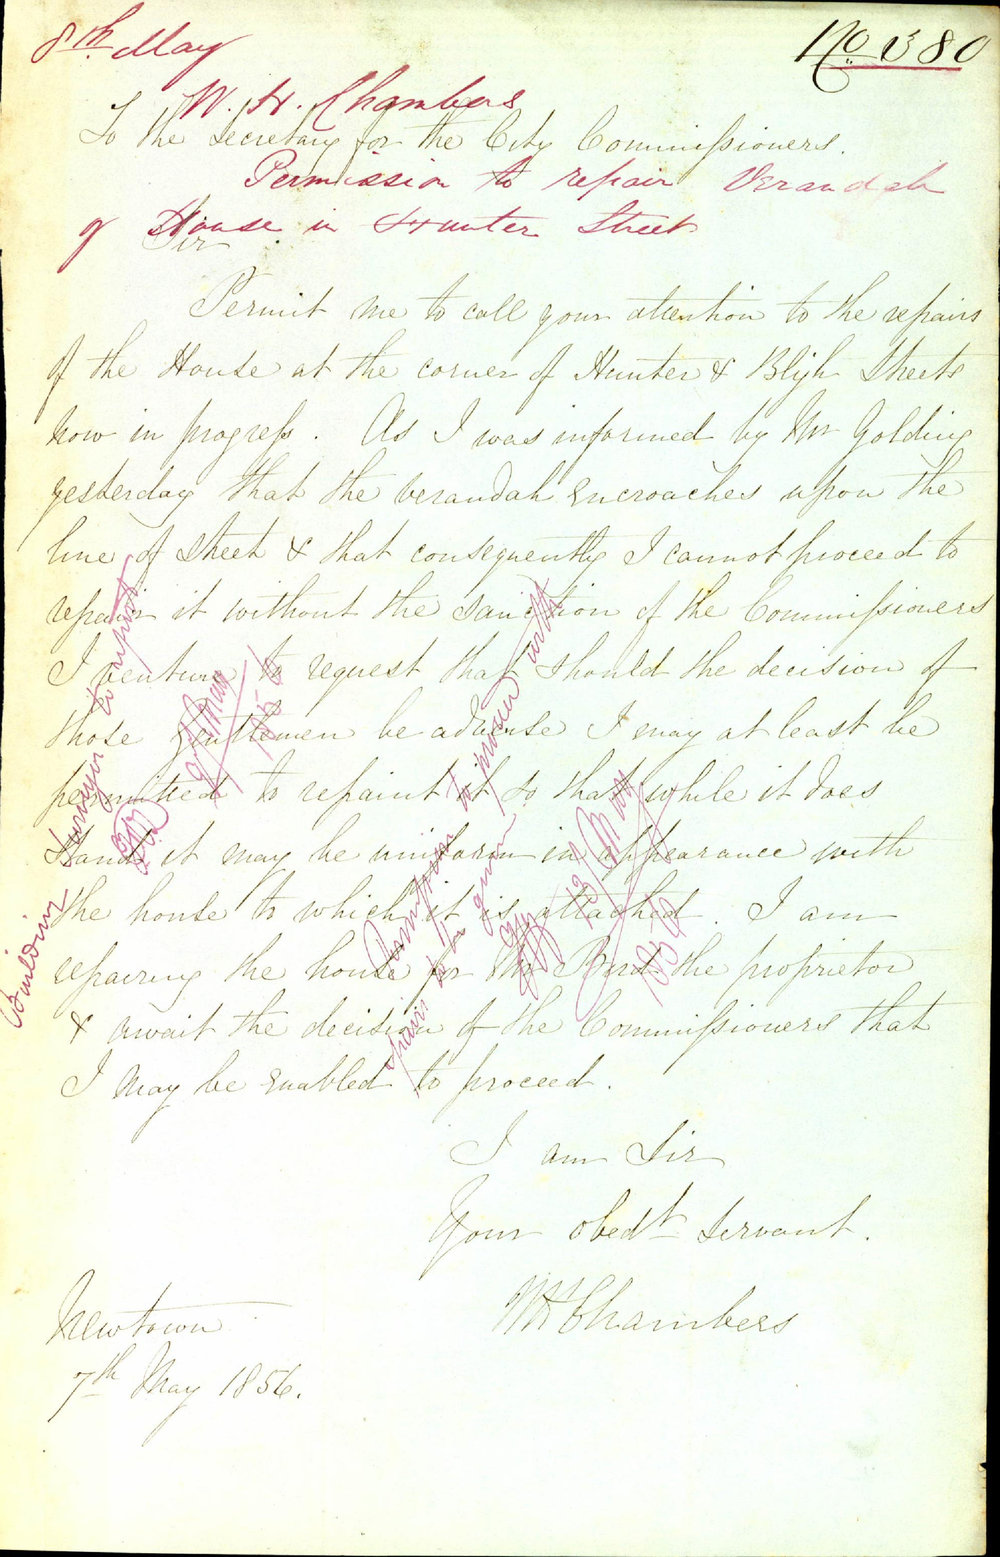 8th May
No 380
W. H. Chambers
To the Secretary for the City Commissioners.
Permission to repair Verandah
of House in Hunter Street
Sir
Permit me to call your attention to the repairs
of the House at the corner of Hunter & Bligh Streets
now in progress. As I was informed by Mr Golding
yesterday that the verandah encroaches upon the
line of Street & that consequently I cannot proceed to
repair it without the sanction of the Commissioners
I venture to request that should the decision of
those Gentlemen be adverse I may at least be
permitted to repaint it so that while it does
stand it may be uniform in appearance with
the house to which it is attached. I am
repairing the house for Mr the proprietor
& await the decision of the Commissioners that
I may be enabled to proceed.
I am Sir
Your obedt Servant.
WH Chambers
Newtown
7th May 1856.
Building Surveyor to report
9 May
1856
Permission to proceed with
repairs to be given
13 May
1856